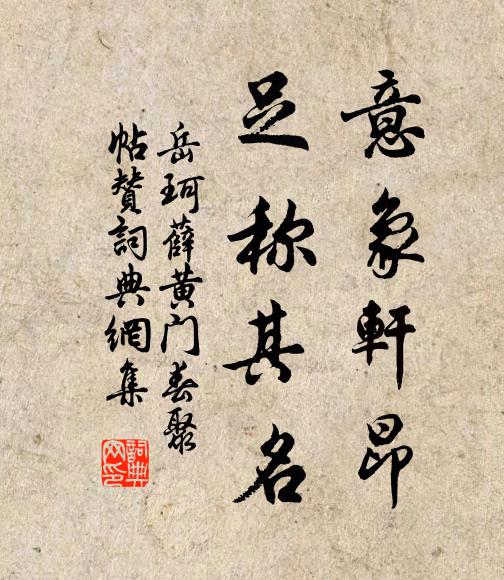 意象軒昂
足称其名
岳珂薛黄门春聚
帖贊詞典網集
詞典网印